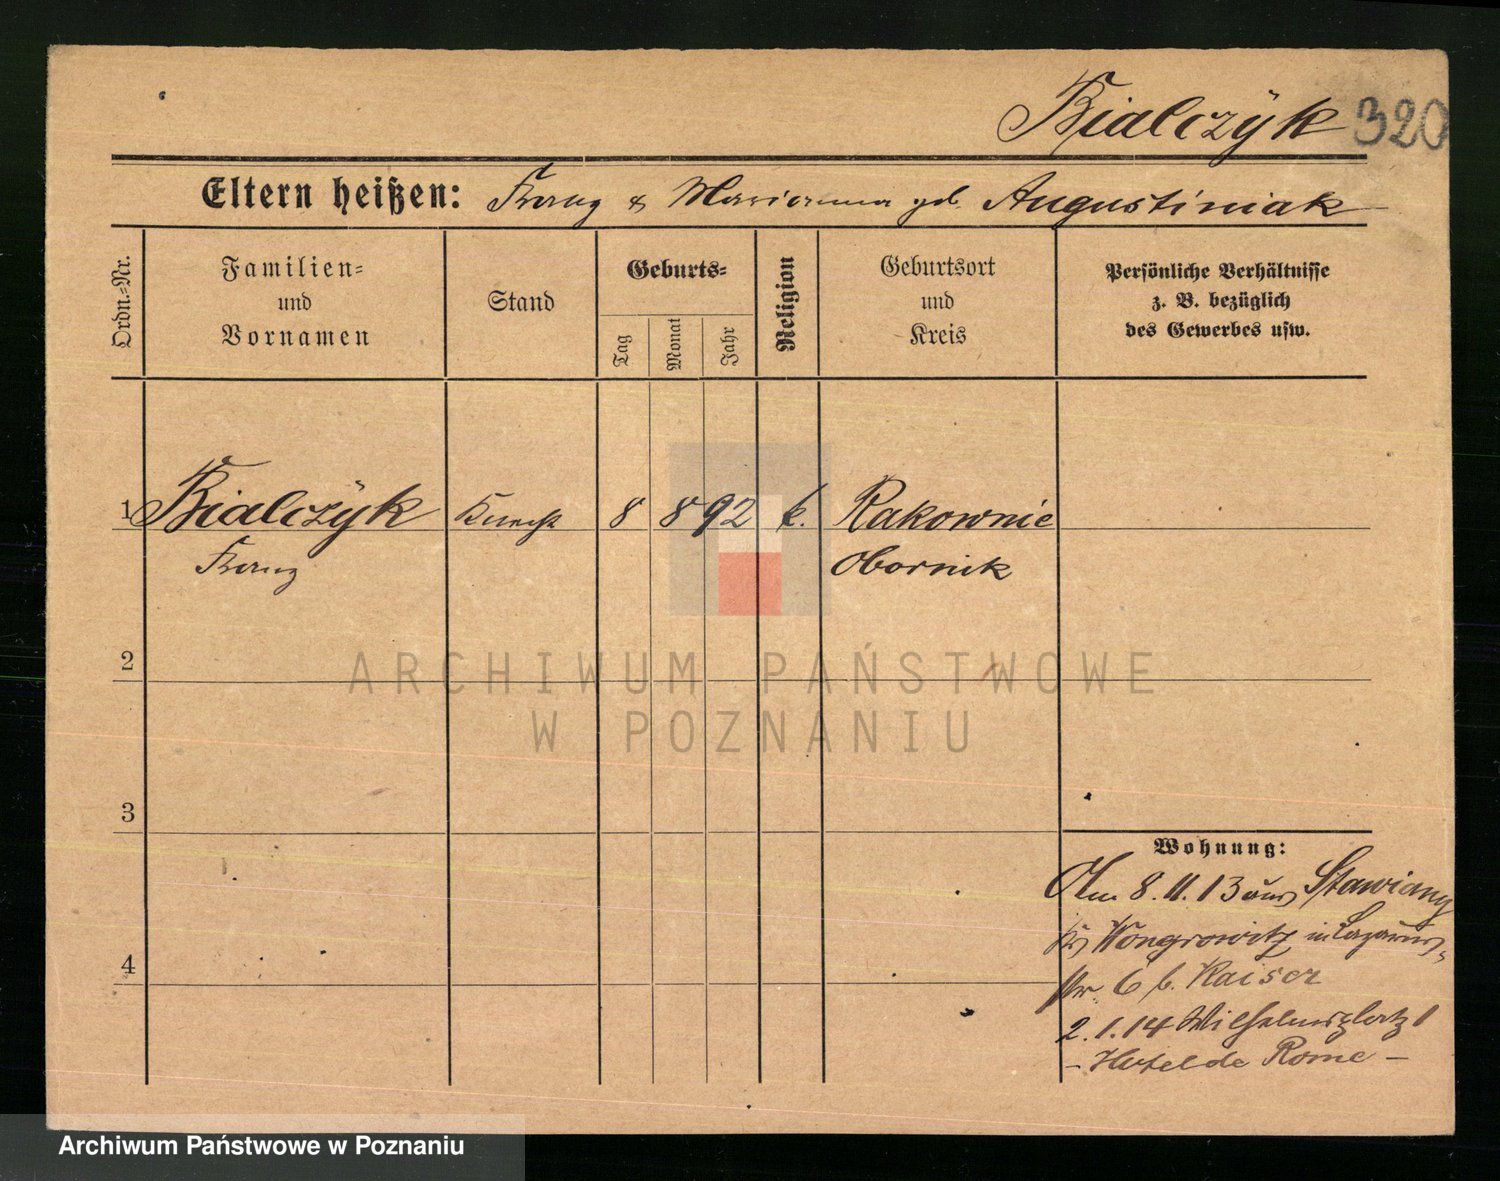 Bialczÿk 320
Eltern heißen: Franz & Marianna geb. Augustiniak
Ordn.-Nr.
Familien-
und
Vornamen
Stand
Geburts-
Tag
Monat
Jahr
Religion
Geburtsort
und
Kreis
Persönliche Verhältnisse
z. B. bezüglich
des Gewerbes usw.
1 Bialczÿk Knecht 8 8 92 k. Rakownie
Franz Obornik
2
ARCHIWUM PAŃSTWOWE
W POZNANIU
3
Wohnung:
Am 8.11.13 aus Stawiany
Krs Wongrowitz in Lazarus-
4
str. 6 b. Kaiser
2.1.14 Wilhelmsplatz 1
- Hotel de Rome -
Archiwum Państwowe w Poznaniu